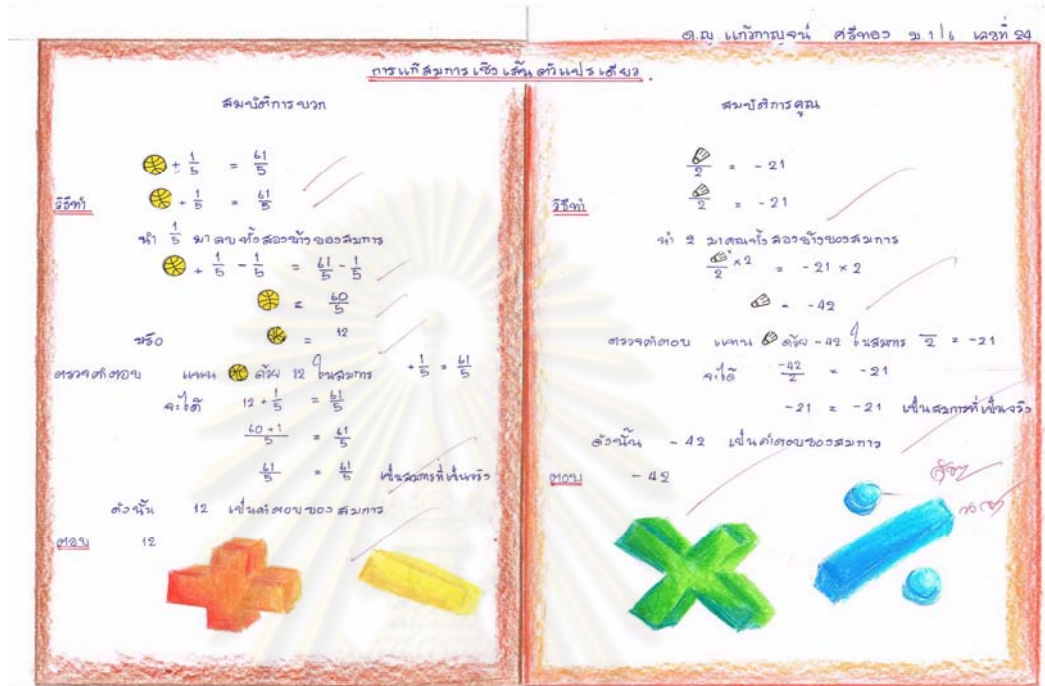 ด.ญ แก้วกาญจน์ ศรีทอง ม 1/6 เลขที่ 24
การแก้สมการเชิงเส้นตัวแปรเดียว
สมบัติการบวก
+ 1/5 = 61/5
วิธีทำ + 1/5 = 61/5
นำ 1/5 มาลบทั้งสองข้างของสมการ
+ 1/5 - 1/5 = 61/5 - 1/5
= 60/5
หรือ = 12
ตรวจคำตอบ แทน ด้วย 12 ในสมการ + 1/5 = 61/5
จะได้ 12 + 1/5 = 61/5
60 + 1/5 = 61/5
61/5 = 61/5 เป็นสมการที่เป็นจริง
ดังนั้น 12 เป็นคำตอบของสมการ
ตอบ 12
สมบัติการคูณ
/2 = - 21
วิธีทำ /2 = - 21
นำ 2 มาคูณทั้งสองข้างของสมการ
/2 × 2 = - 21 × 2
= - 42
ตรวจคำตอบ แทน ด้วย - 42 ในสมการ /2 = - 21
จะได้ -42/2 = - 21
- 21 = - 21 เป็นสมการที่เป็นจริง
ดังนั้น - 42 เป็นคำตอบของสมการ
ตอบ - 42